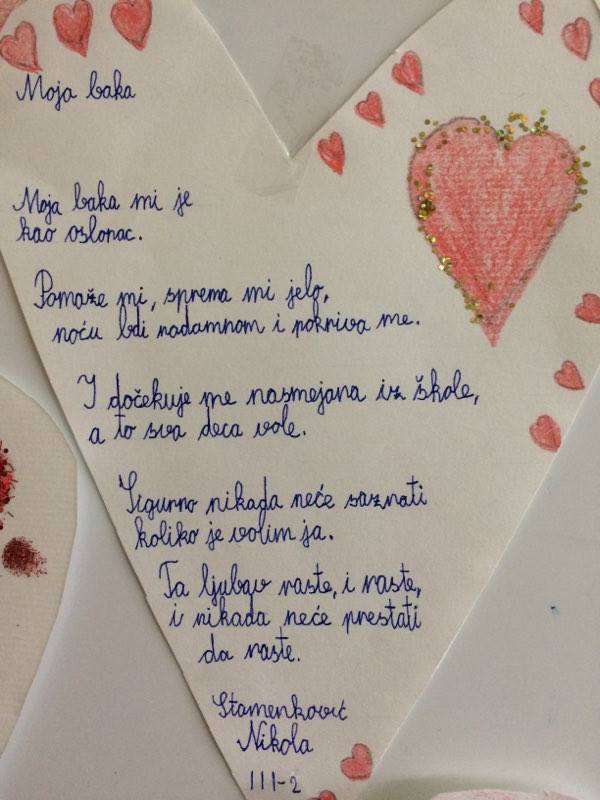 Moja baka
Moja baka mi je
kao oslonac.
Pomaže mi, sprema mi jelo,
noću bdi nadamnom i pokriva me.
I dočekuje me nasmejana iz škole,
a to sva deca vole.
Sigurno nikada neće saznati
koliko je volim ja.
Ta ljubav raste, i raste,
i nikada neće prestati
da raste.
Stamenković
Nikola
III-2